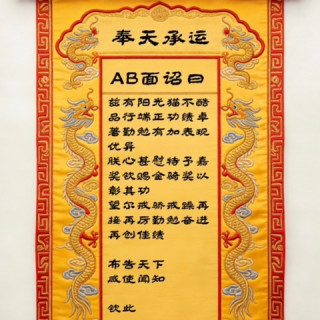 奉天承运
AB面诏曰
兹有阳光猫不酷
品行端正功绩卓
著勤勉有加表现
优异
朕心甚慰特予嘉
奖钦赐金骑奖以
彰其功
望尔戒骄戒躁再
接再厉勤勉奋进
再创佳绩
布告天下
咸使闻知
钦此